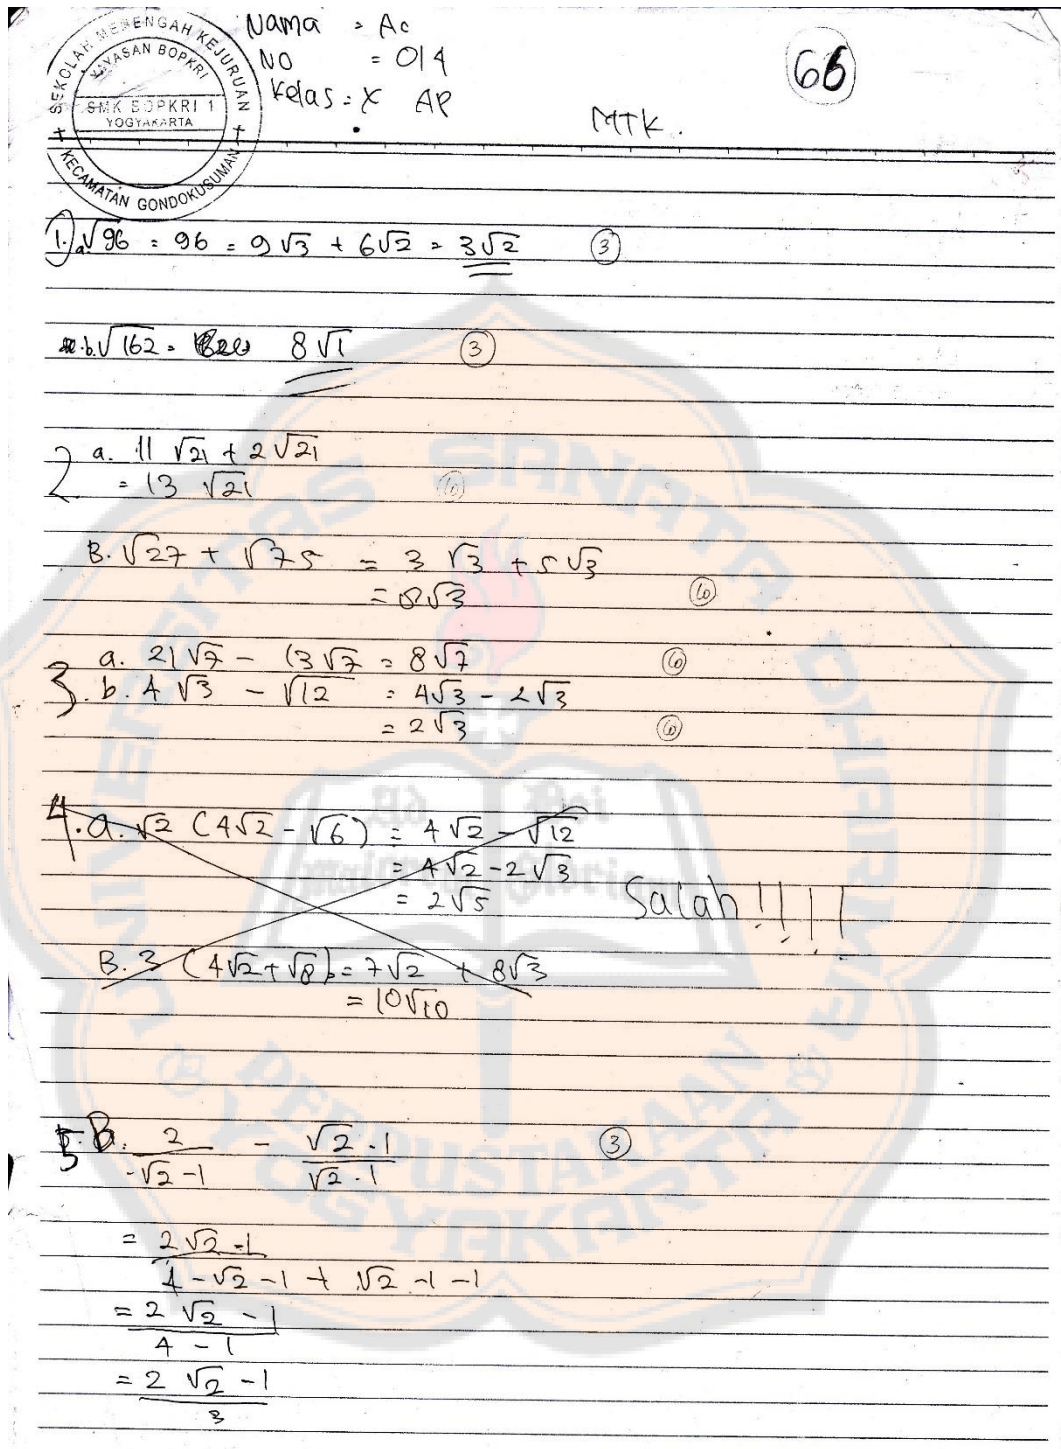 SEKOLAH MENENGAH KEJURUAN
YAYASAN BOPKRI
SMK BOPKRI 1
YOGYAKARTA
KECAMATAN GONDOKUSUMAN
Nama = Ac
NO = 014
Kelas = X AP
66
MTK.
1. a. √96 = 96 = 9√3 + 6√2 = 3√2 3
b. √162 = 8√1 3
2 a. 11 √21 + 2√21
= 13 √21 10
B. √27 + √75 = 3 √3 + 5√3
= 8√3 10
3. a. 21√7 - 13√7 = 8√7 10
b. 4 √3 - √12 = 4√3 - 2√3
= 2√3 10
4. a. √2 (4√2 - √6) = 4√2 - √12
= 4√2 - 2√3
= 2√5
Salah!!!!
B. 3 (4√2 + √8) = 7√2 + 8√3
= 10√10
5. B. 2/-√2-1 - √2.1/√2.1 3
= 2√2-1/4-√2-1+√2-1-1
= 2√2-1/4-1
= 2√2-1/3
UNIVERSITAS SANATA DHARMA
Ad Dei
maiorem Gloriam
PERPUSTAKAAN
YOGYAKARTA